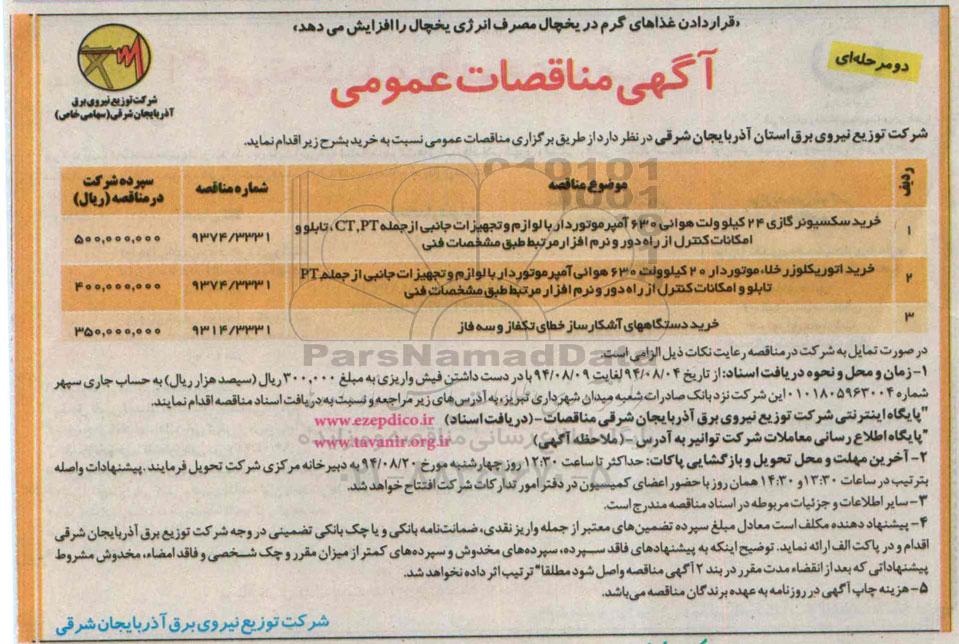 «قراردادن غذاهای گرم در یخچال مصرف انرژی یخچال را افزایش می دهد»
دو مرحله‌ای
آگهی مناقصات عمومی
شرکت توزیع نیروی برق
آذربایجان شرقی (سهامی خاص)
شرکت توزیع نیروی برق استان آذربایجان شرقی در نظر دارد از طریق برگزاری مناقصات عمومی نسبت به خرید بشرح زیر اقدام نماید.
ردیف موضوع مناقصه شماره مناقصه سپرده شرکت در مناقصه (ریال)
۱ خرید سکسیونر گازی ۲۴ کیلو ولت هوائی ۶۳۰ آمپر موتوردار با لوازم و تجهیزات جانبی از جمله CT,PT، تابلو و
امکانات کنترل از راه دور و نرم افزار مرتبط طبق مشخصات فنی ۹۳۷۴/۳۳۳۱ ۵۰۰,۰۰۰,۰۰۰
۲ خرید اتوریکلوزر خلاء موتوردار ۲۰ کیلوولت ۶۳۰ هوائی آمپر موتوردار با لوازم و تجهیزات جانبی از جمله PT
تابلو و امکانات کنترل از راه دور و نرم افزار مرتبط طبق مشخصات فنی ۹۳۷۴/۳۳۳۱ ۴۰۰,۰۰۰,۰۰۰
۳ خرید دستگاههای آشکارساز خطای تکفاز و سه فاز ۹۳۱۴/۳۳۳۱ ۳۵۰,۰۰۰,۰۰۰
ParsNamadData
در صورت تمایل به شرکت در مناقصه رعایت نکات ذیل الزامی است.
۱- زمان و محل و نحوه دریافت اسناد: از تاریخ ۹۴/۰۸/۰۴ لغایت ۹۴/۰۸/۰۹ با در دست داشتن فیش واریزی به مبلغ ۳۰۰,۰۰۰ ریال (سیصد هزار ریال) به حساب جاری سپهر
شماره ۰۱۰۱۸۰۵۹۶۳۰۰۴ این شرکت نزد بانک صادرات شعبه میدان شهرداری تبریز، به آدرس‌های زیر مراجعه و نسبت به دریافت اسناد مناقصه اقدام نمایند.
"پایگاه اینترنتی شرکت توزیع نیروی برق آذربایجان شرقی مناقصات - (دریافت اسناد) www.ezepdico.ir
"پایگاه اطلاع رسانی معاملات شرکت توانیر به آدرس - (ملاحظه آگهی) www.tavanir.org.ir
۲- آخرین مهلت و محل تحویل و بازگشایی پاکات: حداکثر تا ساعت ۱۲:۳۰ روز چهارشنبه مورخ ۹۴/۰۸/۲۰ به دبیرخانه مرکزی شرکت تحویل فرمایند. پیشنهادات واصله
بترتیب در ساعات ۱۳:۳۰ و ۱۴:۳۰ همان روز با حضور اعضای کمیسیون در دفتر امور تدارکات شرکت افتتاح خواهد شد.
۳- سایر اطلاعات و جزئیات مربوطه در اسناد مناقصه مندرج است.
۴- پیشنهاد دهنده مکلف است معادل مبلغ سپرده تضمین‌های معتبر از جمله واریز نقدی، ضمانت‌نامه بانکی و یا چک بانکی تضمینی در وجه شرکت توزیع برق آذربایجان شرقی
اقدام و در پاکت الف ارائه نماید. توضیح اینکه به پیشنهادهای فاقد سپرده، سپرده‌های مخدوش و سپرده‌های کمتر از میزان مقرر و چک شخصی و فاقد امضاء، مخدوش مشروط
پیشنهاداتی که بعد از انقضاء مدت مقرر در بند ۲ آگهی مناقصه واصل شود مطلقا" ترتیب اثر داده نخواهد شد.
۵- هزینه چاپ آگهی در روزنامه به عهده برندگان مناقصه می‌باشد.
شرکت توزیع نیروی برق آذربایجان شرقی